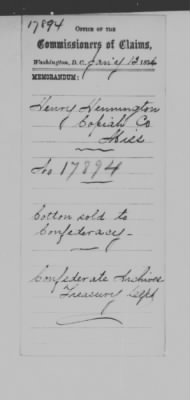 17894
OFFICE OF THE
Commissioners of Claims,
Washington, D.C., Jan'y 13 187
MEMORANDUM:
Henry Hennington
Copiah Co
Miss
No 17894
Cotton sold to
Confederacy-
Confederate Archives
Treasury Dept